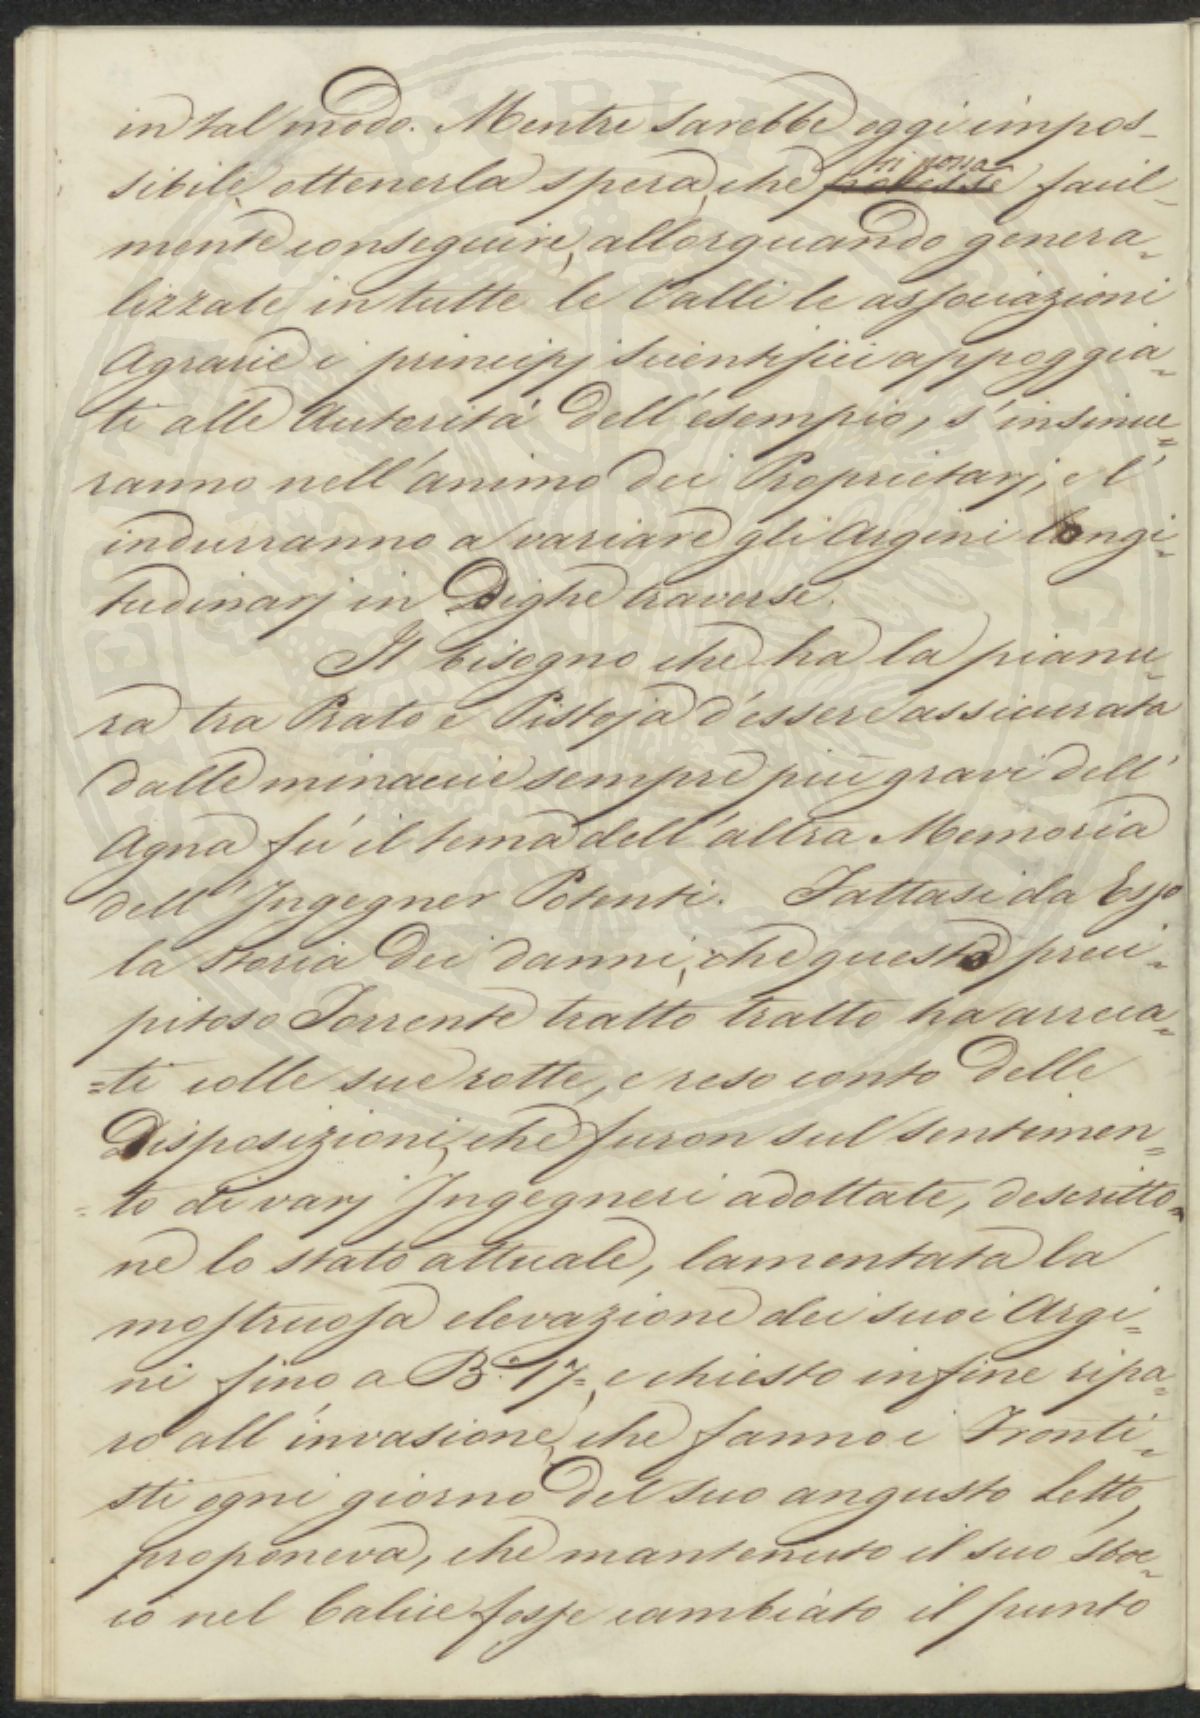 in tal modo. Mentre sarebbe oggi impos-
sibile, ottenerla spera, che si possa potesse facil-
mente conseguire, allorquando genera-
lizzate in tutte le Valli le associazioni
Agrarie i principj scientifici appoggia-
ti alle Autorità dell'esempio, s'insinue-
ranno nell'animo dei Proprietarj, e l'
indurranno a variare gli Argini longi-
tudinarj in Dighe traverse.
Il bisogno che ha la pianu-
ra tra Prato e Pistoja d'essere assicurata
dalle minaccie sempre più gravi dell'
Agna fu' il tema dell'altra Memoria
dell'Ingegner Potenti. Fattasi da Esso
la storia dei danni, che questo preci-
pitoso Torrente tratto tratto ha arreca-
=ti colle sue rotte, e reso conto delle
Disposizioni, che furon sul sentimen=
=to di varj Ingegneri adottate, descritto=
ne lo stato attuale, lamentata la
mostruosa elevazione dei suoi Argi=
ni fino a B.a 17=, e chiesto in fine ripa=
ro all'invasione, che fanno i Fronti=
sti ogni giorno del suo angusto letto,
proponeva, che mantenuto il suo sboc=
co nel Calice fosse cambiato il punto